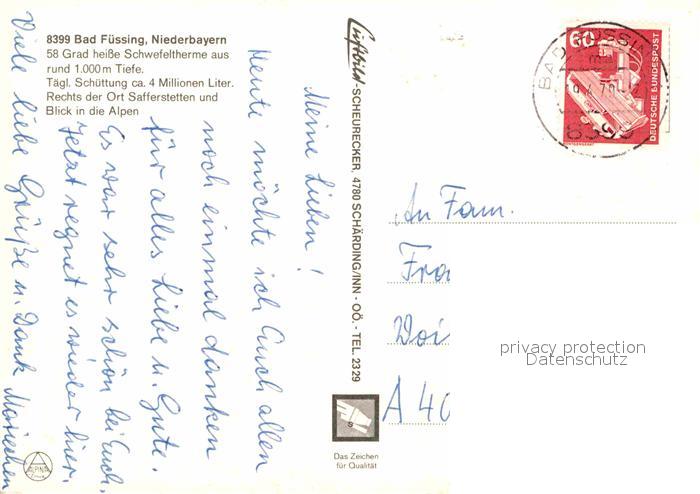 8399 Bad Füssing, Niederbayern
58 Grad heiße Schwefeltherme aus
rund 1.000 m Tiefe.
Tägl. Schüttung ca. 4 Millionen Liter.
Rechts der Ort Safferstetten und
Blick in die Alpen
Meine Lieben!
Heute möchte ich Euch allen
noch einmal danken
für alles Liebe u. Gute.
Es war sehr schön bei Euch.
Jetzt regnet es wieder hier.
Viele liebe Grüße u. Dank Mariechen
Luftbild-SCHEURECKER, 4780 SCHÄRDING/INN - OÖ. - TEL. 2329
Das Zeichen
für Qualität
60
DEUTSCHE BUNDESPOST
BAD FÜSSING
An Fam.
Fra
Woi
A 40
privacy protection
Datenschutz
ALPINA